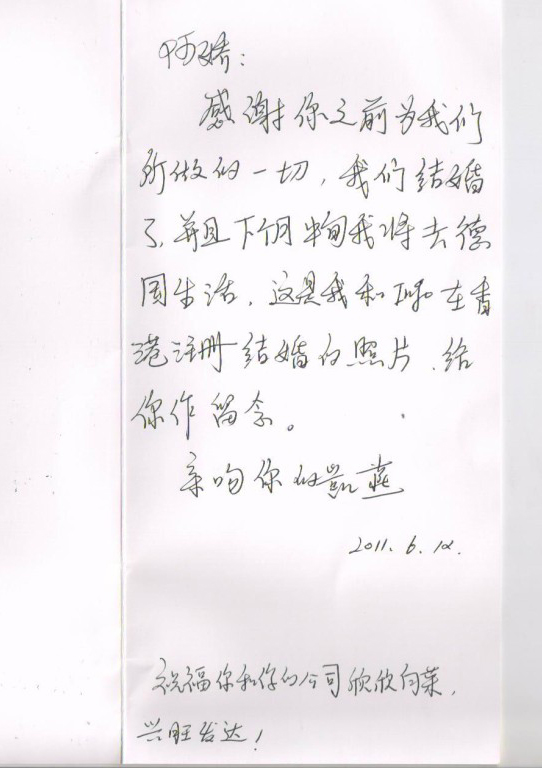 阿娇：
感谢你之前为我们
所做的一切，我们结婚
了，并且下个月中旬我将去德
国生活，这是我和Ingo在香
港注册结婚的照片，给
你作留念。
亲吻你的凯燕
2011.6.12.
祝福你和你的公司欣欣向荣，
兴旺发达！